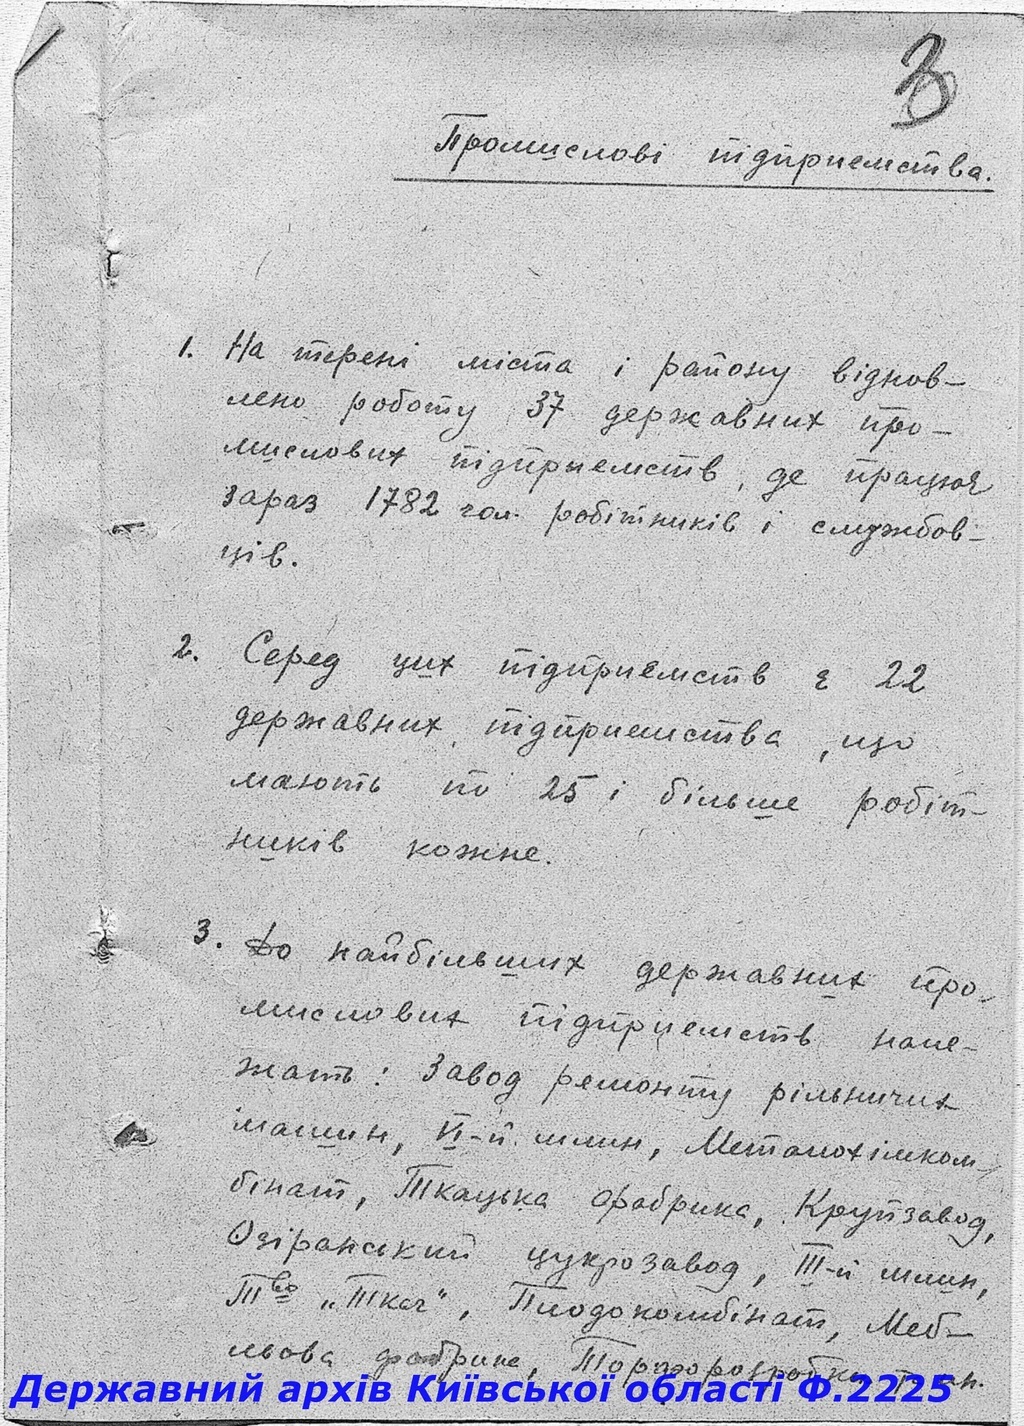 3
Промислові підприємства.
1. На терені міста і району віднов-
лено роботу 37 державних про-
мислових підприємств, де працює
зараз 1782 чол. робітників і службов-
ців.
2. Серед цих підприємств є 22
державних підприємства, що
мають по 25 і більше робіт-
ників кожне.
3. До найбільших державних про-
мислових підприємств нале-
жать: Завод ремонту рільничих
машин, VI-й млин, Металохімком-
бінат, Ткацька фабрика, Крупзавод,
Озірянський цукрозавод, III-й млин,
Тво "Ткач", Плодокомбінат, Меб-
льова фабрика, Торфорозробки
Державний архів Київської області Ф.2225